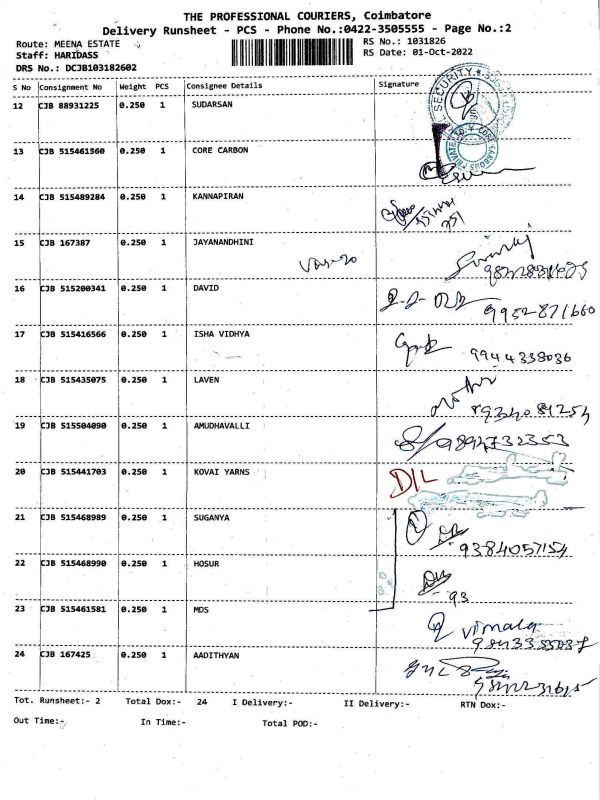 THE PROFESSIONAL COURIERS, Coimbatore
Delivery Runsheet - PCS - Phone No.:0422-3505555 - Page No.:2
Route: MEENA ESTATE RS No.: 1031826
Staff: HARIDASS RS Date: 01-Oct-2022
DRS No.: DCJB103182602
S No Consignment No Weight PCS Consignee Details Signature
12 CJB 88931225 0.250 1 SUDARSAN
SECURITY
13 CJB 515461560 0.250 1 CORE CARBON
14 CJB 515489284 0.250 1 KANNAPIRAN
15 CJB 167387 0.250 1 JAYANANDHINI
16 CJB 515200341 0.250 1 DAVID 9952871660
17 CJB 515416566 0.250 1 ISHA VIDHYA 9944338036
18 CJB 515435075 0.250 1 LAVEN
19 CJB 515504090 0.250 1 AMUDHAVALLI 9894732353
20 CJB 515441703 0.250 1 KOVAI YARNS D/L
21 CJB 515468989 0.250 1 SUGANYA 9384057154
22 CJB 515468990 0.250 1 HOSUR 93
23 CJB 515461581 0.250 1 MDS vimala
24 CJB 167425 0.250 1 AADITHYAN
Tot. Runsheet:- 2 Total Dox:- 24 I Delivery:- II Delivery:- RTN Dox:-
Out Time:- In Time:- Total POD:-